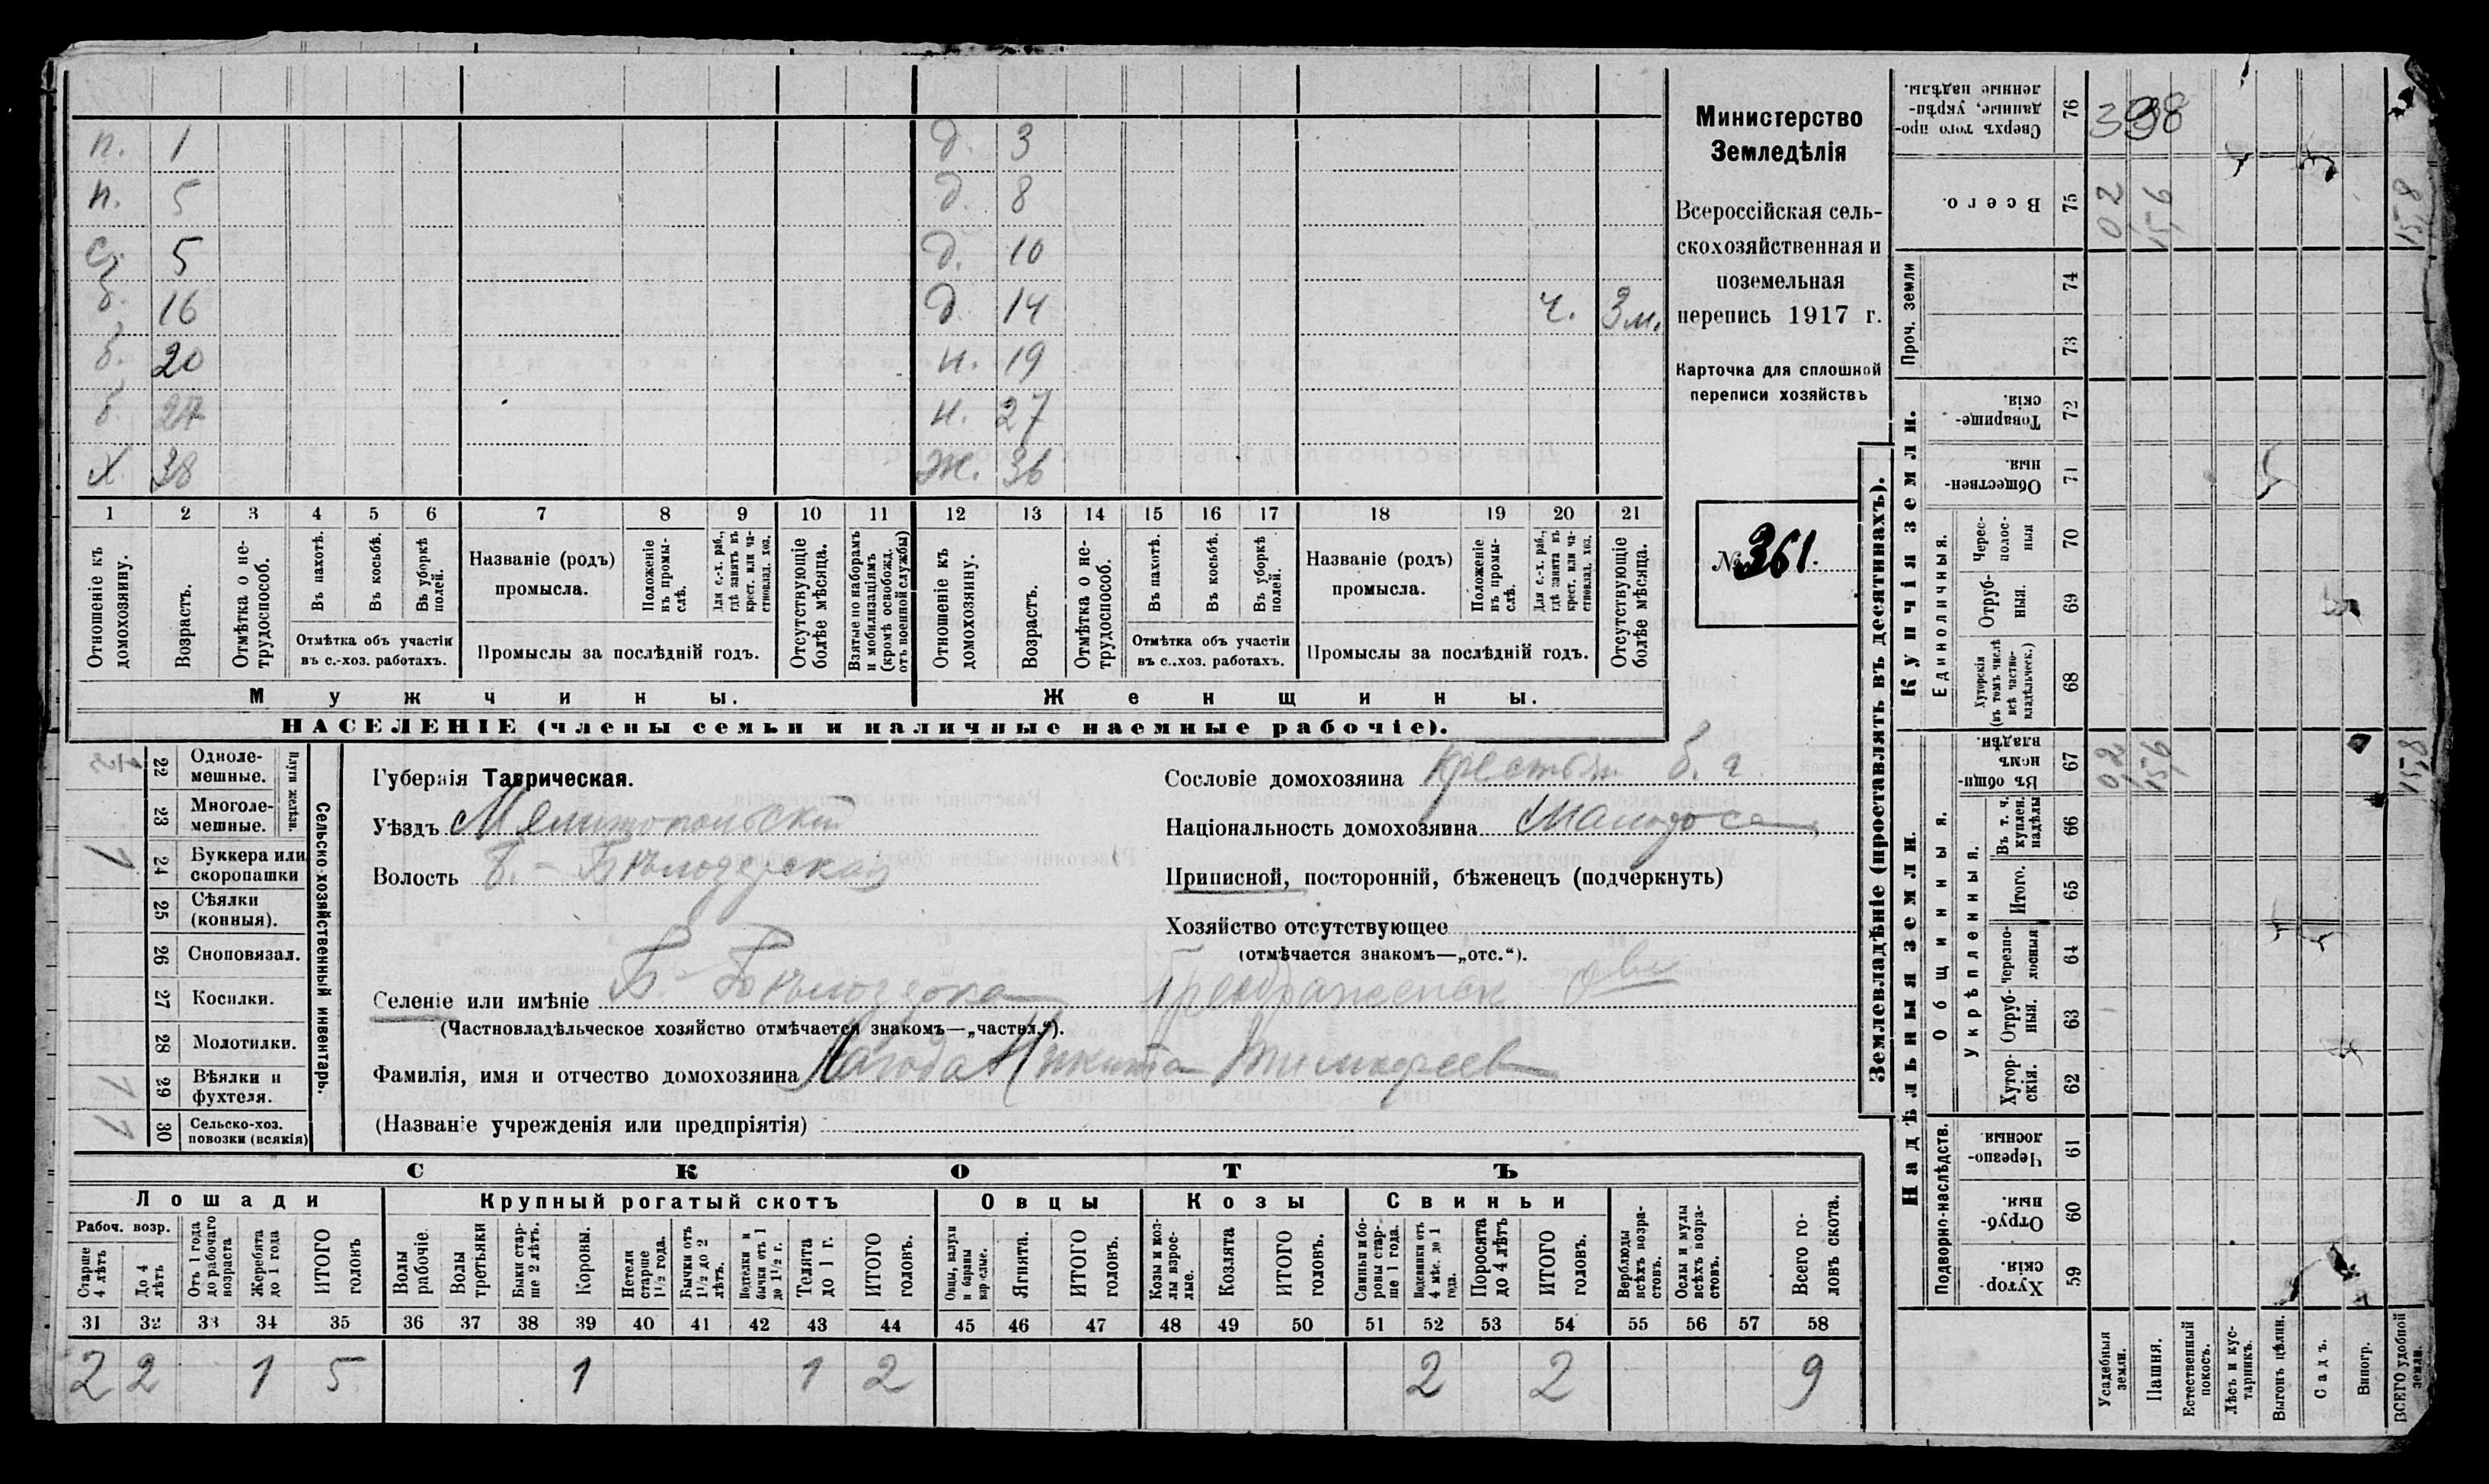 п. 1 д. 3
п. 5 д. 8
с. 5 д. 10
б. 16 д. 14 ч. 3 м.
б. 20 н. 19
б. 27 н. 27
х. 38 ж. 36
1 2 3 4 5 6 7 8 9 10 11 12 13 14 15 16 17 18 19 20 21
Отношеніе къ домохозяину.
Возрастъ.
Отмѣтка о не-трудоспособ.
Въ пахотѣ.
Въ косьбѣ.
Въ уборкѣ полей.
Отмѣтка объ участіи
въ с.-хоз. работахъ.
Названіе (родъ)
промысла.
Положеніе въ промы-слѣ.
Для с.-х. раб., гдѣ занятъ въ крест. или ча-стновлад. хоз.
Промыслы за послѣдній годъ.
Отсутствующіе болѣе мѣсяца.
Взятые по наборамъ и мобилизаціямъ (кромѣ освобожд. отъ военной службы)
Отношеніе къ домохозяину.
Возрастъ.
Отмѣтка о не-трудоспособ.
Въ пахотѣ.
Въ косьбѣ.
Въ уборкѣ полей.
Отмѣтка объ участіи
въ с.-хоз. работахъ.
Названіе (родъ)
промысла.
Положеніе въ промы-слѣ.
Для с.-х. раб., гдѣ занята въ крест. или ча-стновлад. хоз.
Промыслы за послѣдній годъ.
Отсутствующіе болѣе мѣсяца.
Мужчины. Женщины.
НАСЕЛЕНІЕ (члены семьи и наличные наемные рабочіе).
Министерство
Земледѣлія
Всероссійская сель-
скохозяйственная и
поземельная
перепись 1917 г.
Карточка для сплошной
переписи хозяйствъ
№ 361.
22 Одноле-мешные.
23 Многоле-мешные.
Плуги желѣзн.
24 Буккера или скоропашки 1
25 Сѣялки (конныя).
26 Сноповязал.
27 Косилки.
28 Молотилки.
29 Вѣялки и фухтеля. 1
30 Сельско-хоз. повозки (всякія) 1
Сельско-хозяйственный инвентарь.
Губернія Таврическая.
Уѣздъ Мелитопольскій
Волость Б.-Бѣлозерская
Селеніе или имѣніе Б-Бѣлозерка Преображенск о-ва
(Частновладѣльческое хозяйство отмѣчается знакомъ—„частвл.“).
Фамилія, имя и отчество домохозяина Лагода Никита Тимофеев
(Названіе учрежденія или предпріятія)
Сословіе домохозяина крестьян
Національность домохозяина Малорос
Приписной, посторонній, бѣженецъ (подчеркнуть)
Хозяйство отсутствующее
(отмѣчается знакомъ—„отс.“).
СКОТЪ
Лошади Крупный рогатый скотъ Овцы Козы Свиньи
Рабоч. возр.
Старше 4 лѣтъ
До 4 лѣтъ
Отъ 1 года до рабочаго возраста
Жеребята до 1 года
ИТОГО головъ
Волы рабочіе.
Волы третьяки
Быки стар-ше 2 лѣтъ.
Коровы.
Нетели старше 1½ года.
Бычки отъ 1½ до 2 лѣтъ.
Подтелки и бычки отъ 1 до 1½ г.
Телята до 1 г.
ИТОГО головъ.
Овцы, валухи и бараны взрослые.
Ягнята.
ИТОГО головъ.
Козы и коз-лы взрос-лые.
Козлята
ИТОГО головъ.
Свиньи и бо-ровы стар-ше 1 года.
Подсвинки отъ 4 мѣс. до 1 года.
Поросята до 4 лѣтъ
ИТОГО головъ.
Верблюды всѣхъ возра-стовъ.
Ослы и мулы всѣхъ возра-стовъ.
Всего го-ловъ скота.
31 32 33 34 35 36 37 38 39 40 41 42 43 44 45 46 47 48 49 50 51 52 53 54 55 56 57 58
2 2 1 5 1 1 2 2 2 9
Землевладѣніе (проставлять въ десятинахъ).
Надѣльныя земли. Купчія земли.
Подворно-наслѣдств.
Общинныя.
Укрѣпленныя.
Единоличныя.
Проч. земли
59 Хутор-скія.
60 Отруб-ныя.
61 Черезпо-лосныя.
62 Хутор-скія.
63 Отруб-ныя.
64 Черезпо-лосныя
65 Итого.
66 Въ т. ч. куплен. надѣлы
67 Въ общи-номъ владѣн. 02 15,6 15,8
68 Хуторскія (въ томъ числѣ всѣ частно-владѣльческ.)
69 Отруб-ныя.
70 Черес-полос-ныя
71 Обществен-ныя.
72 Товарище-скія.
73
74
75 Всего. 02 15,6 15,8
76 Сверхъ того про-данные, укрѣп-ленные надѣлы.
Усадебныя земли.
Пашня.
Естественный покосъ.
Лѣсъ и кус-тарникъ.
Выгонъ цѣлин.
Садъ.
Виногр.
ВСЕГО удобной земли.